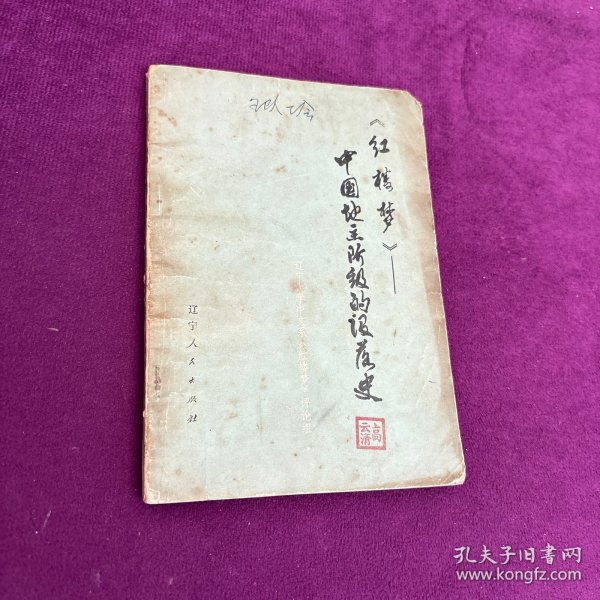 《红楼梦》——
中国地主阶级的没落史
辽宁人民出版社
高云清
孔夫子旧书网
www.kongfz.com